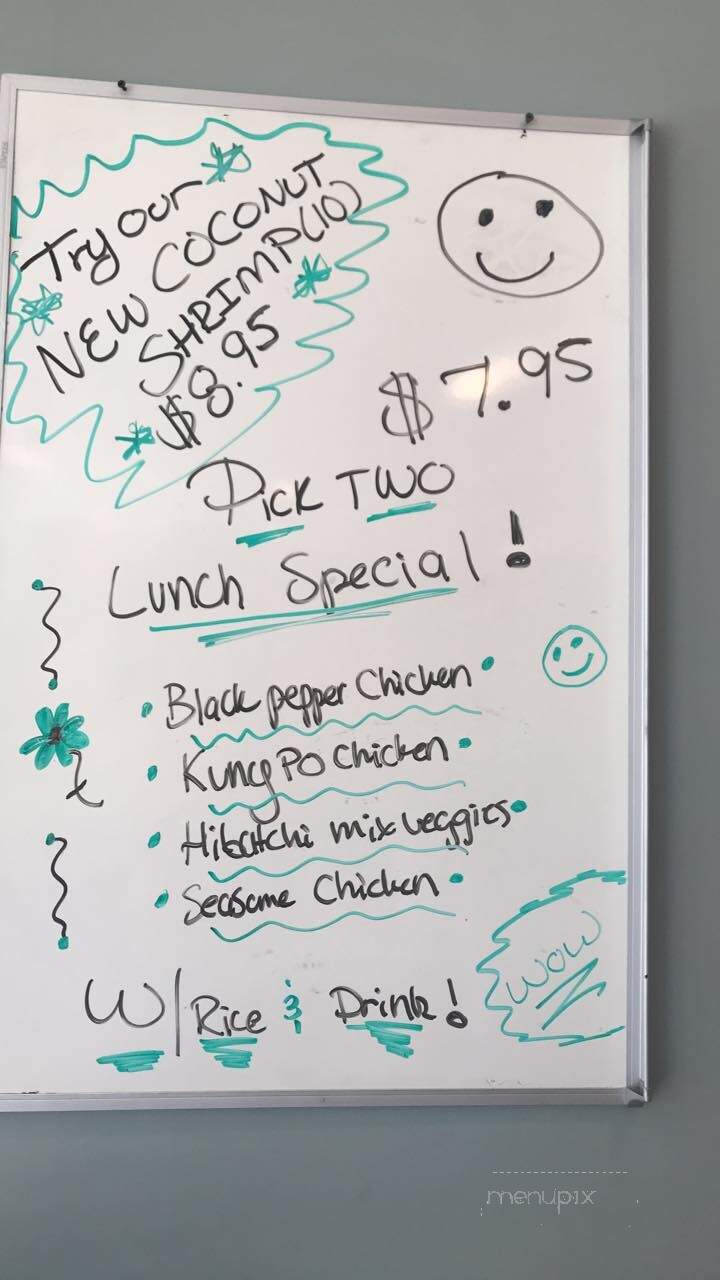 Try our
NEW COCONUT
SHRIMP(10)
$8.95
$7.95
Pick TWO
Lunch Special!
Black pepper Chicken
Kung Po Chicken
Hibatchi mix veggies
Seasame Chicken
W/Rice & Drink!
WOW
menupix